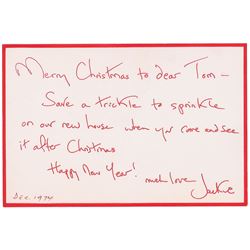 Merry Christmas to dear Tom —
Save a trickle to sprinkle
on our new house when you come and see
it after Christmas
Happy New Year! much love Jackie
Dec. 1974